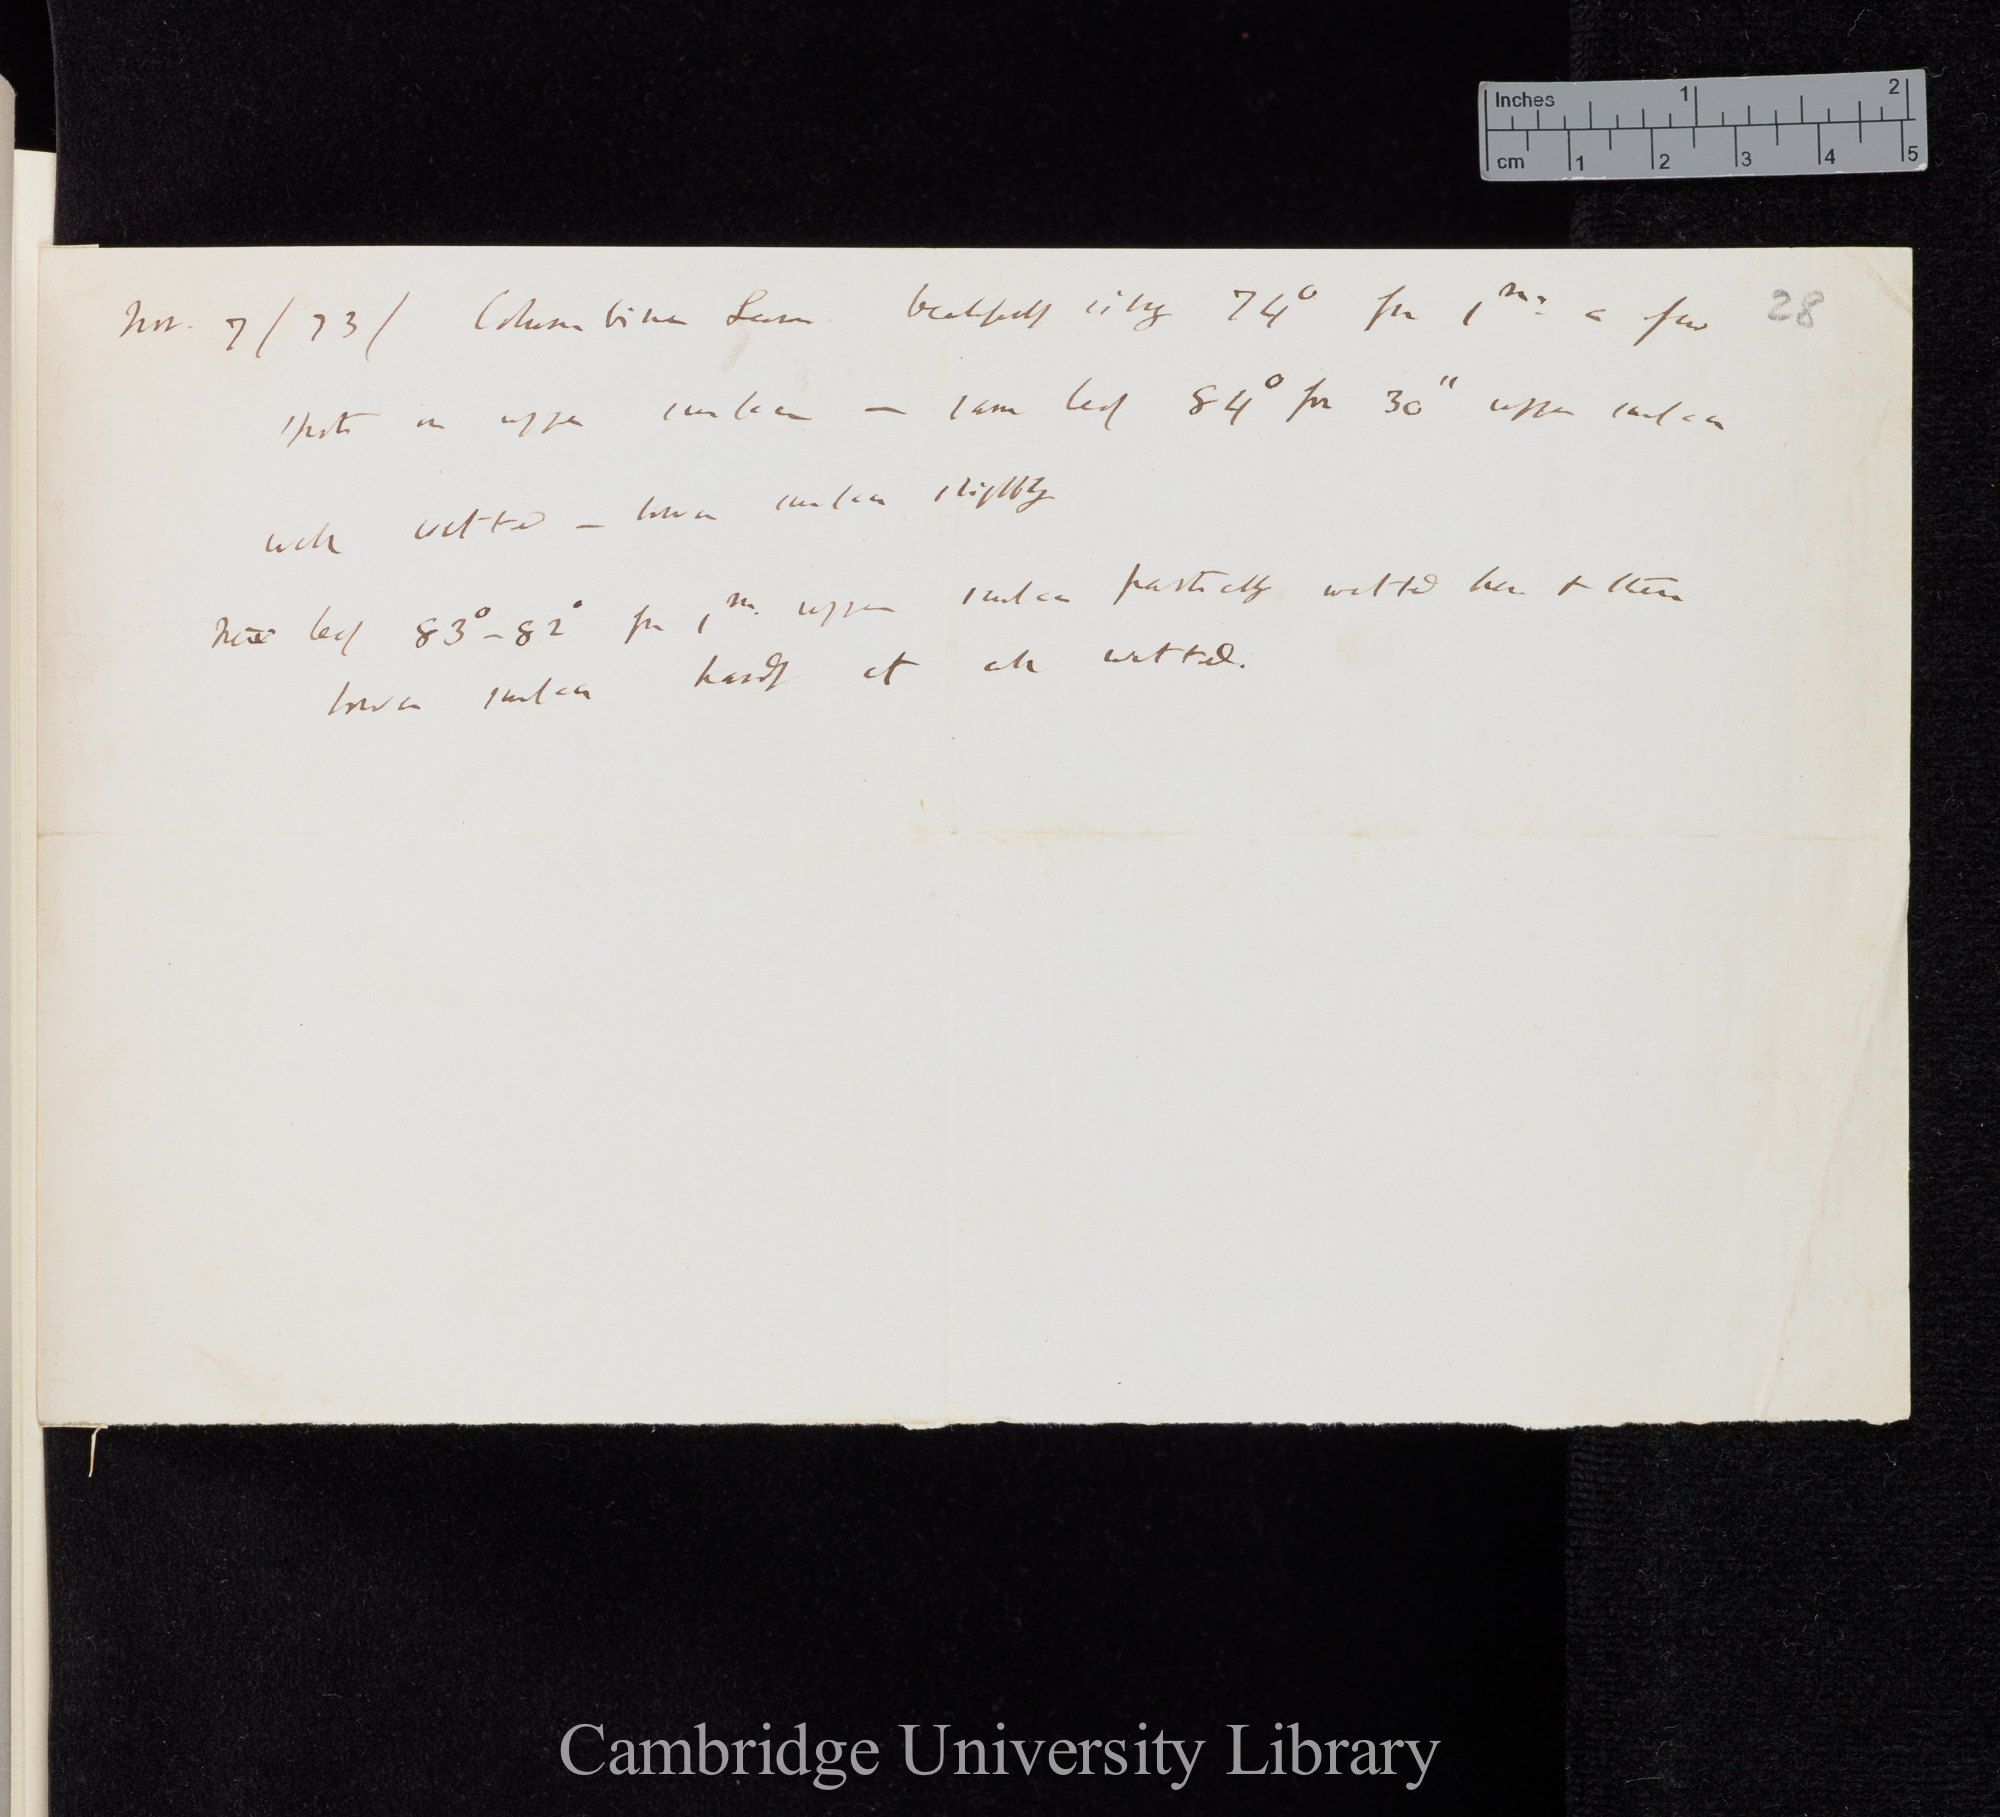 Inches 1 2
cm 1 2 3 4 5
28
Nov. 7/73/ Columbine Leaves beautifully silvery 74° for 1m. a few
spots on upper surface — same leaf 84° for 30" upper surface
well wetted — lower surface slightly
New leaf 83°–82° for 1m. upper surface partially wetted here & there
lower surface hardly at all wetted.
Cambridge University Library